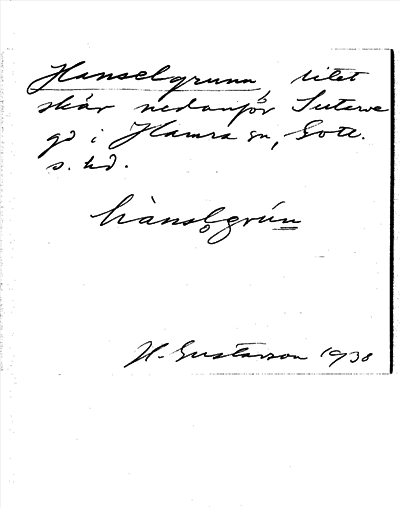 Hanselgrunn, litet
skär nedanför Suterve
gd i Hamra sn, Gotl.
s. hd.
hànsl̥grún
H. Gustavson 1938